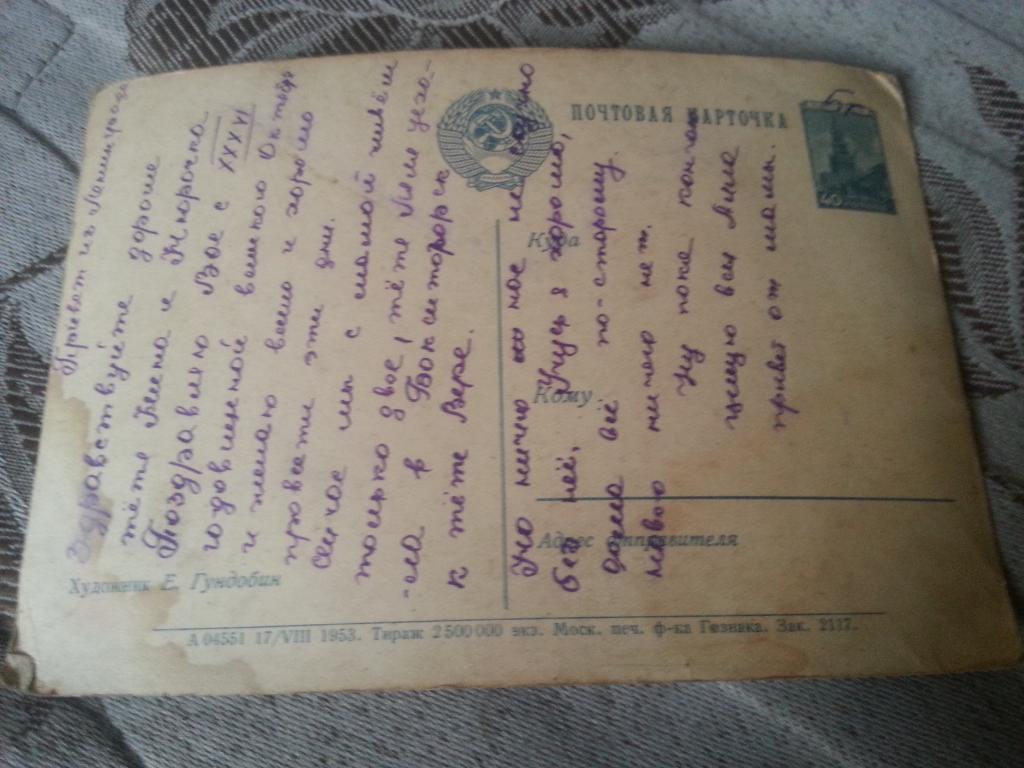 ПОЧТОВАЯ КАРТОЧКА
5р
40
Куда
Кому
Адрес отправителя
Художник Е. Гундобин
А 04551 17/VIII 1953. Тираж 2 500 000 экз. Моск. печ. ф-ка Гознака. Зак. 2117.
Привет из Ленинграда
Здравствуйте дорогие
тётя и Нюрочка.
Поздравляю Вас с XXXVI
годовщиной великого Октября
и желаю весело и хорошо
провести эти дни.
Сейчас мы с мамой живём
только двое, тётя Лиля уеха-
-ла в Бокситогорск
к тёте Вере.
Но ничего мне не скучно
без неё. Учусь я хорошо,
дома всё по-старому.
нового ничего нет.
Ну пока кончаю
целую вас Лиля
привет от мамы.